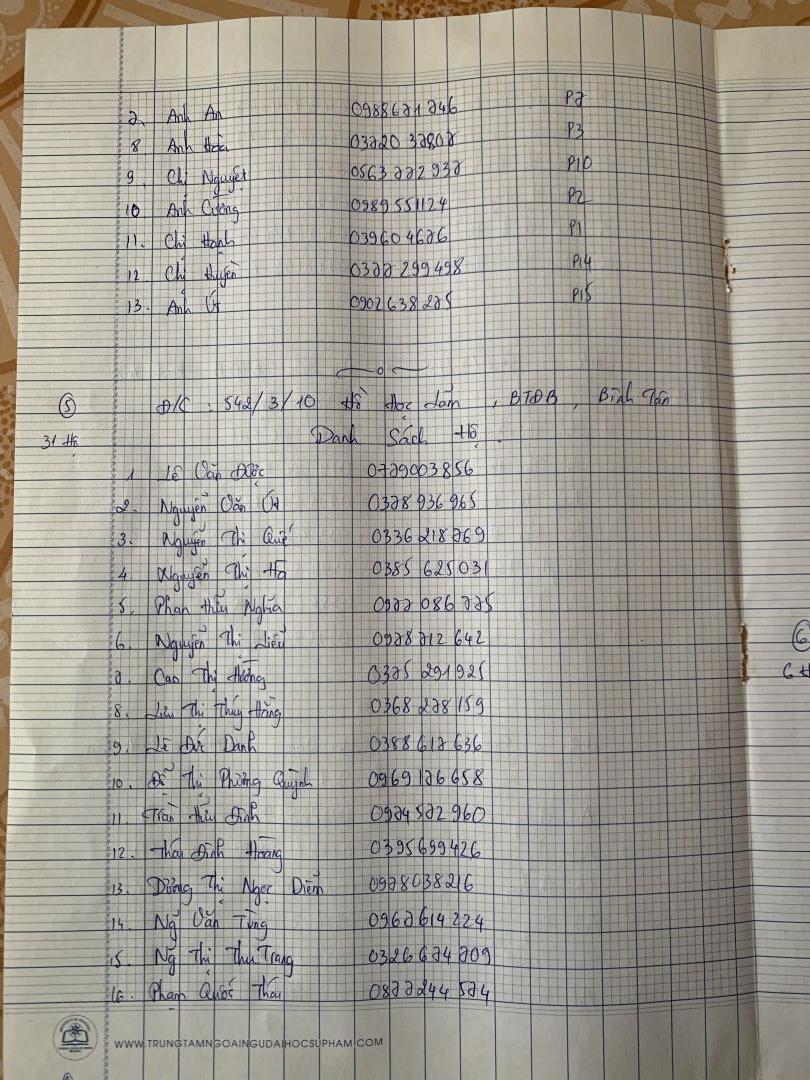 7. Anh An 0988671746 P7
8 Anh Hòa 03720 37807 P3
9. Chị Nguyệt 0563 772 937 P10
10 Anh Cường 0989551124 P2
11. Chị Hạnh 039604676 P1
12 Chị Huyền 0377 299 498 P14
13. Anh Út 0902638275 P15
5 Đ/C : 542/3/10 Hồ Học Lãm, BTĐB, Bình Tân
31 Hộ Danh Sách Hộ.
1. Lê Văn Được 0779003856
2. Nguyễn Văn Út 0378 936 965
3. Nguyễn Thị Quế 0336 218 769
4. Nguyễn Thị Hà 0385 625 031
5. Phan Hữu Nghĩa 0977 086 775
6. Nguyễn Thị Liễu 0978 712 642
7. Cao Thị Hường 0375 291 925
8. Liêu Thị Thúy Hằng 0368 278 159
9. Lê Đức Danh 0388 617 636
10. Đỗ Thị Phương Quỳnh 0969 176 658
11. Trần Hữu Định 0974 572 960
12. Thái Đình Hoàng 0395699426
13. Dương Thị Ngọc Diễm 0978038216
14. Ng̃ Văn Tùng 0967614 224
15. Ng̃ Thị Thu Trang 0326 674 709
16. Phạm Quốc Thái 0877244 574
WWW.TRUNGTAMNGOAINGUDAIHOCSUPHAM.COM
6
6 H